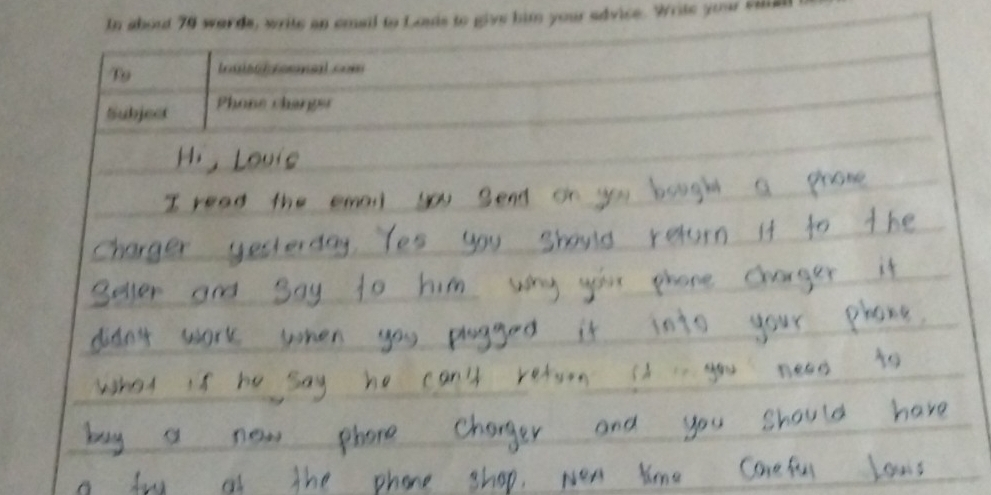 In about 70 words, write an email to Louis to give him your advice. Write your email
To
Subject
Phone charger
Hi, Louis
I read the email you send on you bought a phone
charger yesterday. Yes you should return it to the
seller and say to him why your phone charger it
didn't work when you plugged it into your phone.
what if he say he can't return it you need to
buy a new phone charger and you should have
a try at the phone shop. Next time careful Louis